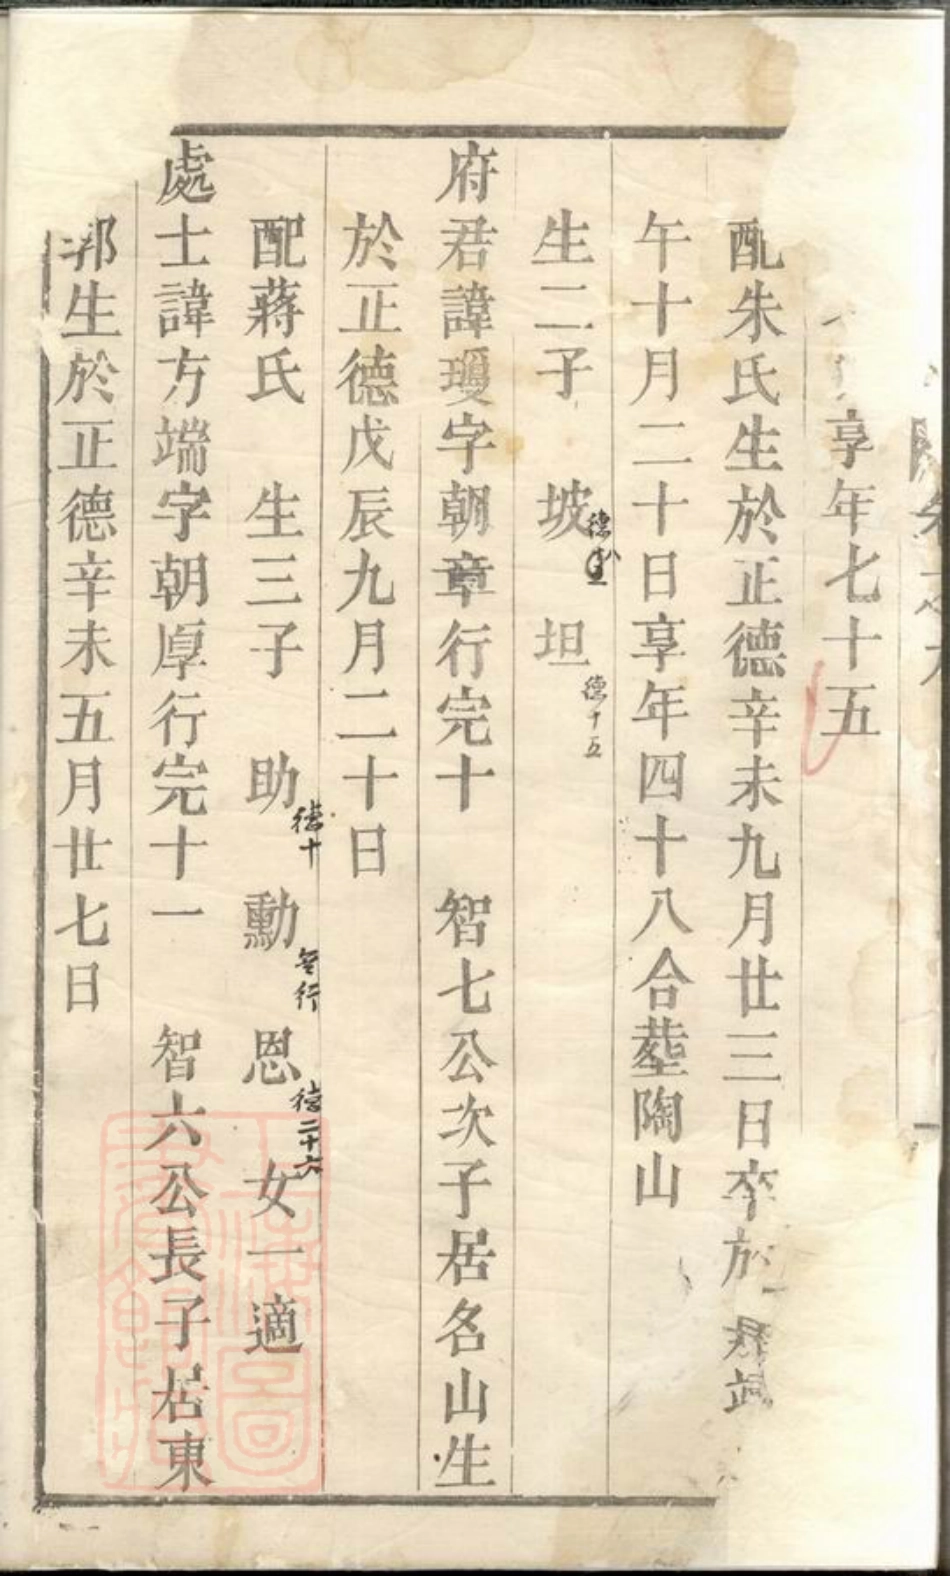 享年七十五
配朱氏生於正德辛未九月廿三日卒於
午十月二十日享年四十八合葬陶山
生二子 坡 坦德十五
府君諱瓊字朝章行完十 智七公次子居名山生
於正德戊辰九月二十日
配蔣氏 生三子 助德十 勳無行 恩德二十六 女一適
處士諱方端字朝厚行完十一 智六公長子居東
郭生於正德辛未五月廿七日